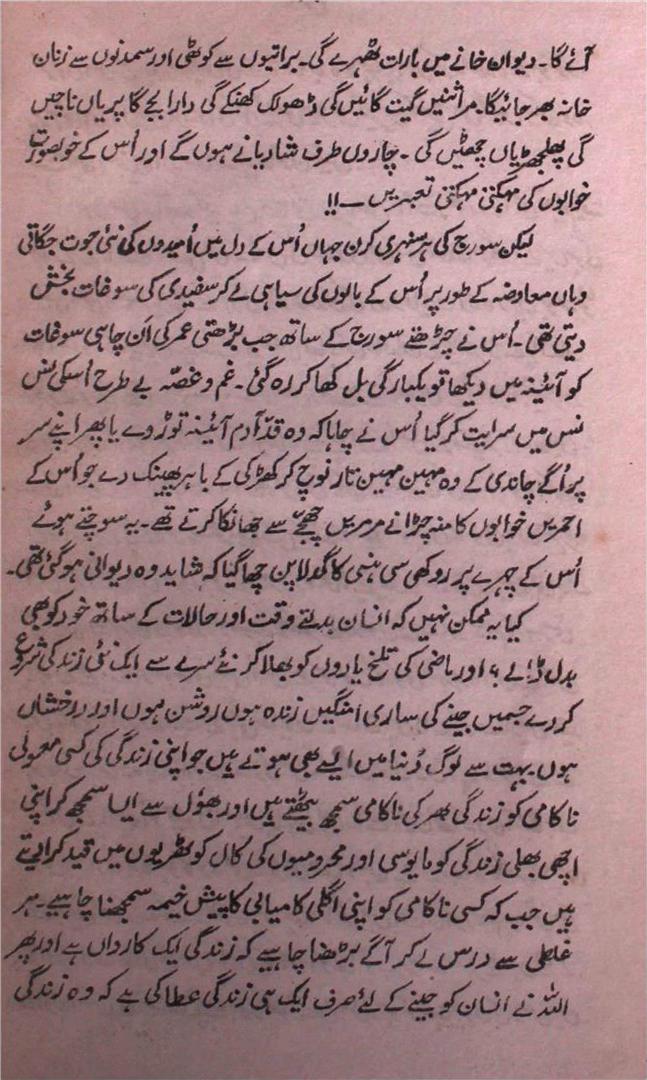 آئے گا۔ دیوان خانے میں بارات ٹھہرے گی۔ براتیوں سے کوٹھی اور سمدنوں سے زنان
خانہ بھر جائیگا۔ مراثنیں گیت گائیں گی ڈھولک کھنکے گی دارا بجے گا پریاں ناچیں
گی پھلجھڑیاں چھٹیں گی۔ چاروں طرف شادیانے ہوں گے اور اُس کے خوبصورت
خوابوں کی مہکتی مہکتی تعبیریں ــ !!
لیکن سورج کی ہر سنہری کرن جہاں اُس کے دل میں اُمیدوں کی نئی جوت جگاتی
وہاں معاوضہ کے طور پر اُس کے بالوں کی سیاہی لے کر سفیدی کی سوغات بخش
دیتی تھی۔ اُس نے چڑھتے سورج کے ساتھ جب بڑھتی عمر کی اَن چاہی سوغات
کو آئینہ میں دیکھا تو یکبارگی بل کھا کر رہ گئی۔ غم و غصّہ بے طرح اُسکی نس
نس میں سرایت کر گیا اُس نے چاہا کہ وہ قدِّ آدم آئینہ توڑ دے یا پھر اپنے سر
پر اُگے چاندی کے وہ مہین مہین تار نوچ کر کھڑکی کے باہر پھینک دے جو اُس کے
احمریں خوابوں کا منہ چڑانے مرمریں چھجّے سے جھانکا کرتے تھے۔ یہ سوچتے ہوئے
اُس کے چہرے پر روکھی سی ہنسی کا گدلا پن چھا گیا کہ شاید وہ دیوانی ہو گئی تھی۔
کیا یہ ممکن نہیں کہ انسان بدلتے وقت اور حالات کے ساتھ خود کو بھی
بدل ڈالے ؟ اور ماضی کی تلخ یادوں کو بھلا کر نئے سرے سے ایک نئی زندگی شروع
کر دے جسمیں جینے کی ساری امنگیں زندہ ہوں روشن ہوں اور درخشاں
ہوں بہت سے لوگ دُنیا میں ایسے بھی ہوتے ہیں جو اپنی زندگی کی کسی معمولی
ناکامی کو زندگی بھر کی ناکامی سمجھ بیٹھتے ہیں اور بھول سے ایسا سمجھ کر اپنی
اچھی بھلی زندگی کو مایوسی اور محرومیوں کی کال کوٹھریوں میں قید کر لیتے
ہیں جب کہ کسی ناکامی کو اپنی اگلی کامیابی کا پیش خیمہ سمجھنا چاہیے۔ ہر
غلطی سے درس لے کر آگے بڑھنا چاہیے کہ زندگی ایک کارواں ہے اور پھر
اللہ نے انسان کو جینے کے لئے صرف ایک ہی زندگی عطا کی ہے کہ وہ زندگی